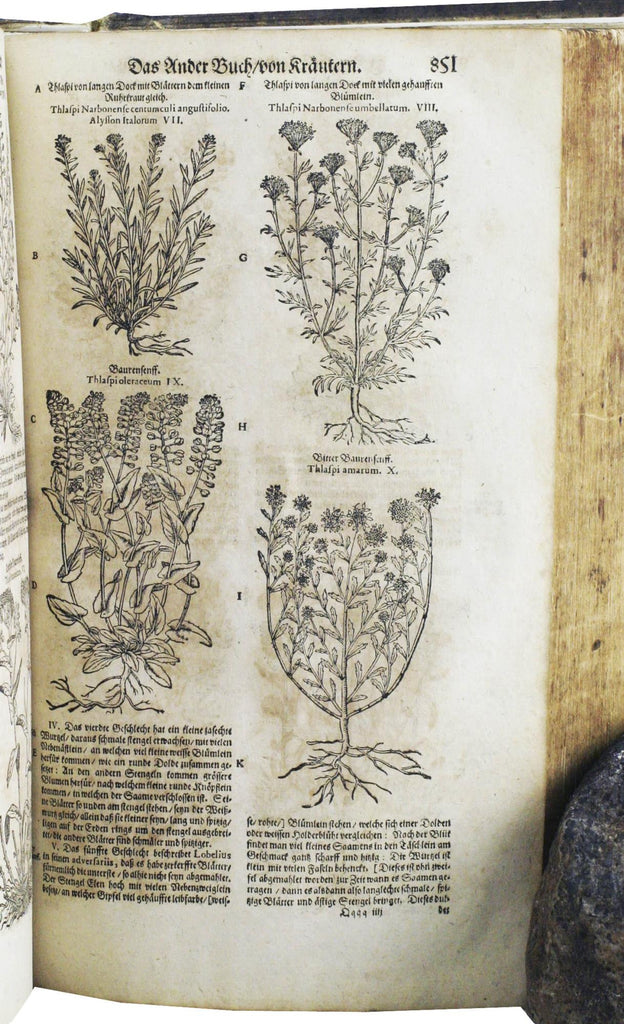 Das Ander Buch/von Kräutern. 851
A Thlaspi von langen Dock mit Blättern dem kleinen
Ruhrkraut gleich.
Thlaspi Narbonense centunculi angustifolio.
Alysson Italorum VII.
B
Baurensenff.
Thlaspi oleraceum IX.
C
D
IV. Das vierdte Geschlecht hat ein kleine fasechte
Wurtzel/ daraus schmale stengel erwachsen/ mit vielen
Nebenästlein/ an welchen viel kleine weisse Blümlein
herfür kommen/ wie ein runde Dolde zusammen ge-
setzet: An den andern Stengeln kommen grössere
Blumen herfür/ nach welchem kleine runde Knöpflein
kommen/ in welchen der Saame verschlossen ist. Sei-
ne Blätter so unden am stengel stehen/ seyn der Weiß-
wurtz gleich/ allein daß sie kleiner seyn/ lang und spitzig/
ligen auff der Erden rings um den stengel ausgebrei-
tet/ die andere Blätter sind schmäler und spitziger.
E
V. Das fünffte Geschlecht beschreibet Lobelius
in seinen adversariis, daß es habe zerkerffte Blätter/
fürnemlich die unterste/ so alhie nicht seyn abgemahlet.
Der Stengel Elen hoch mit vielen Nebenzweiglein
besetzt/ an welcher Gipfel viel gehäuffte leibfarbe/ [weis-
F Thlaspi von langen Dock mit vielen gehaufften
Blümlein.
Thlaspi Narbonense umbellatum. VIII.
G
H
Bitter Baurensenff.
Thlaspi amarum. X.
I
K
se/ rohte/] Blümlein stehen/ welche sich einer Dolden
oder weissen Holderblüht vergleichen: Nach der Blüt
findet man viel kleines Saamens in den Täschlein am
Geschmack gantz scharff und hitzig: Die Wurtzel ist
klein mit vielen Faseln behenckt. [Dieses ist ohn zwei-
fel abgemahlet worden zur Zeit wann es Saamen ge-
tragen/ dann es alsdann also langlechte schmale/ spi-
tzige Blätter und ästige Stengel bringet. Dieses dul-
Qqqq iiij des